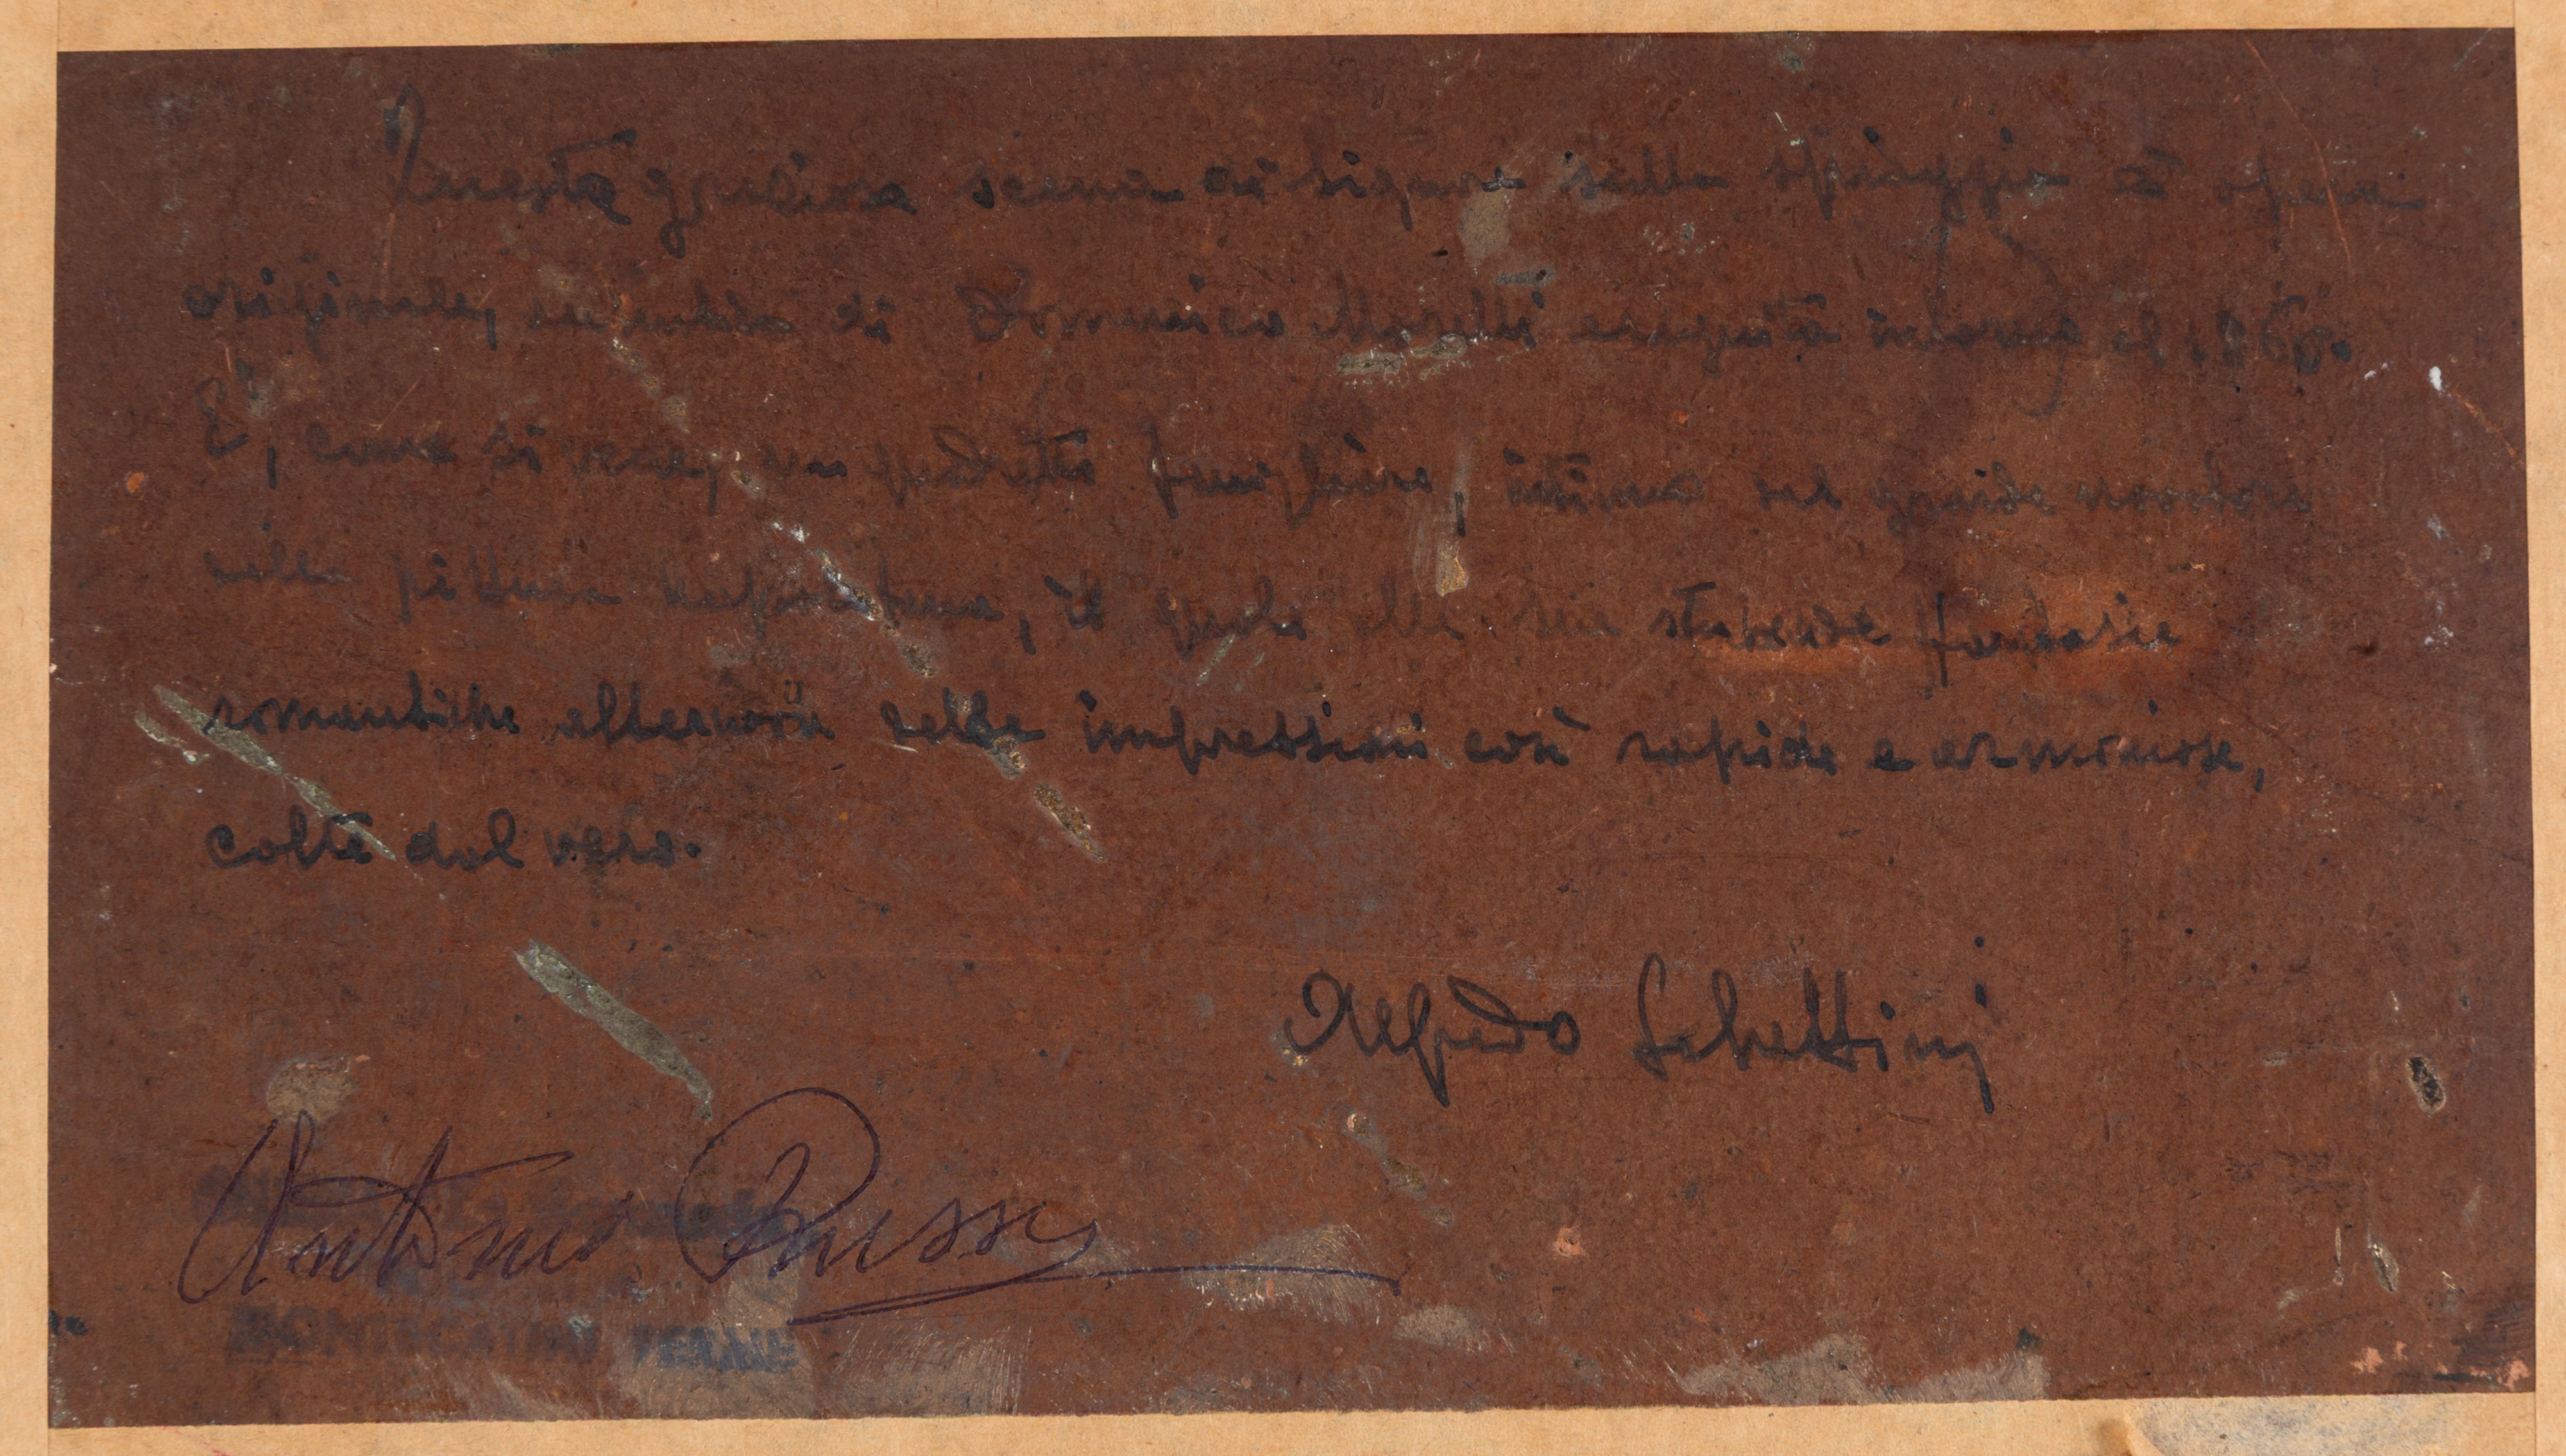 Questa graziosa scena di figure sulla spiaggia è opera
originale, autentica di Domenico Morelli eseguita intorno al 186
È, come si vede, un quadretto famigliare, intimo del grande novatore
della pittura napoletana, il quale alle sue stupende fantasie
romantiche alternava delle impressioni così rapide e armoniose,
colte dal vero.
Alfredo Schettini
Antonio Russo
MONTECATINI TERME